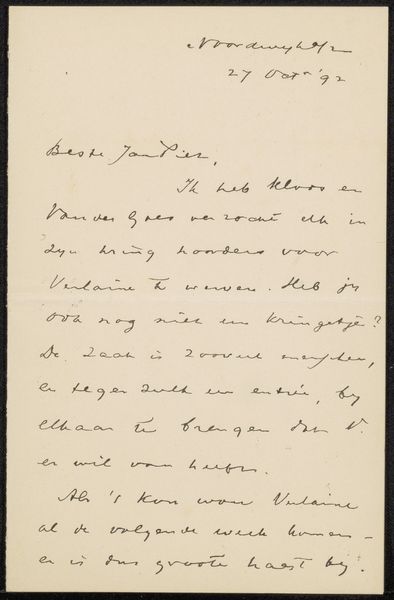 Noordwijk a/z
27 Oct. '92
Beste Jan Piet,
Ik heb Kloos en
Van der Goes verzocht elk in
zijn kring hoorders voor
Verlaine te werven. Heb jij
ook nog niet een kringetje?
De zaak is zooveel menschen,
en tegen zulk een entrée, bij
elkaar te brengen dat V.
er wil van heeft.
Als 't kon wou Verlaine
al de volgende week komen –
er is dus groote haast bij.